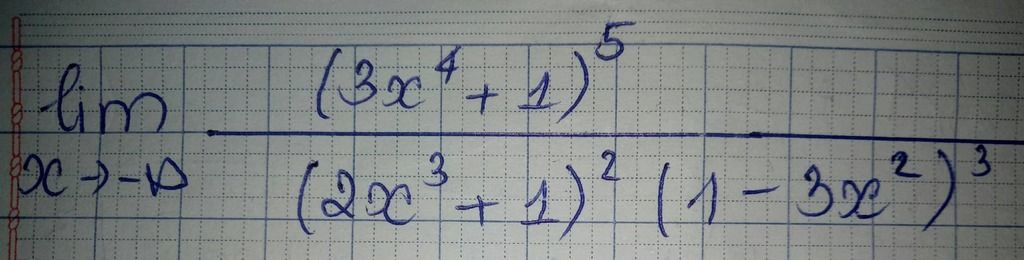 lim (3x⁴ + 1)⁵
x → -∞ (2x³ + 1)² (1 - 3x²)³